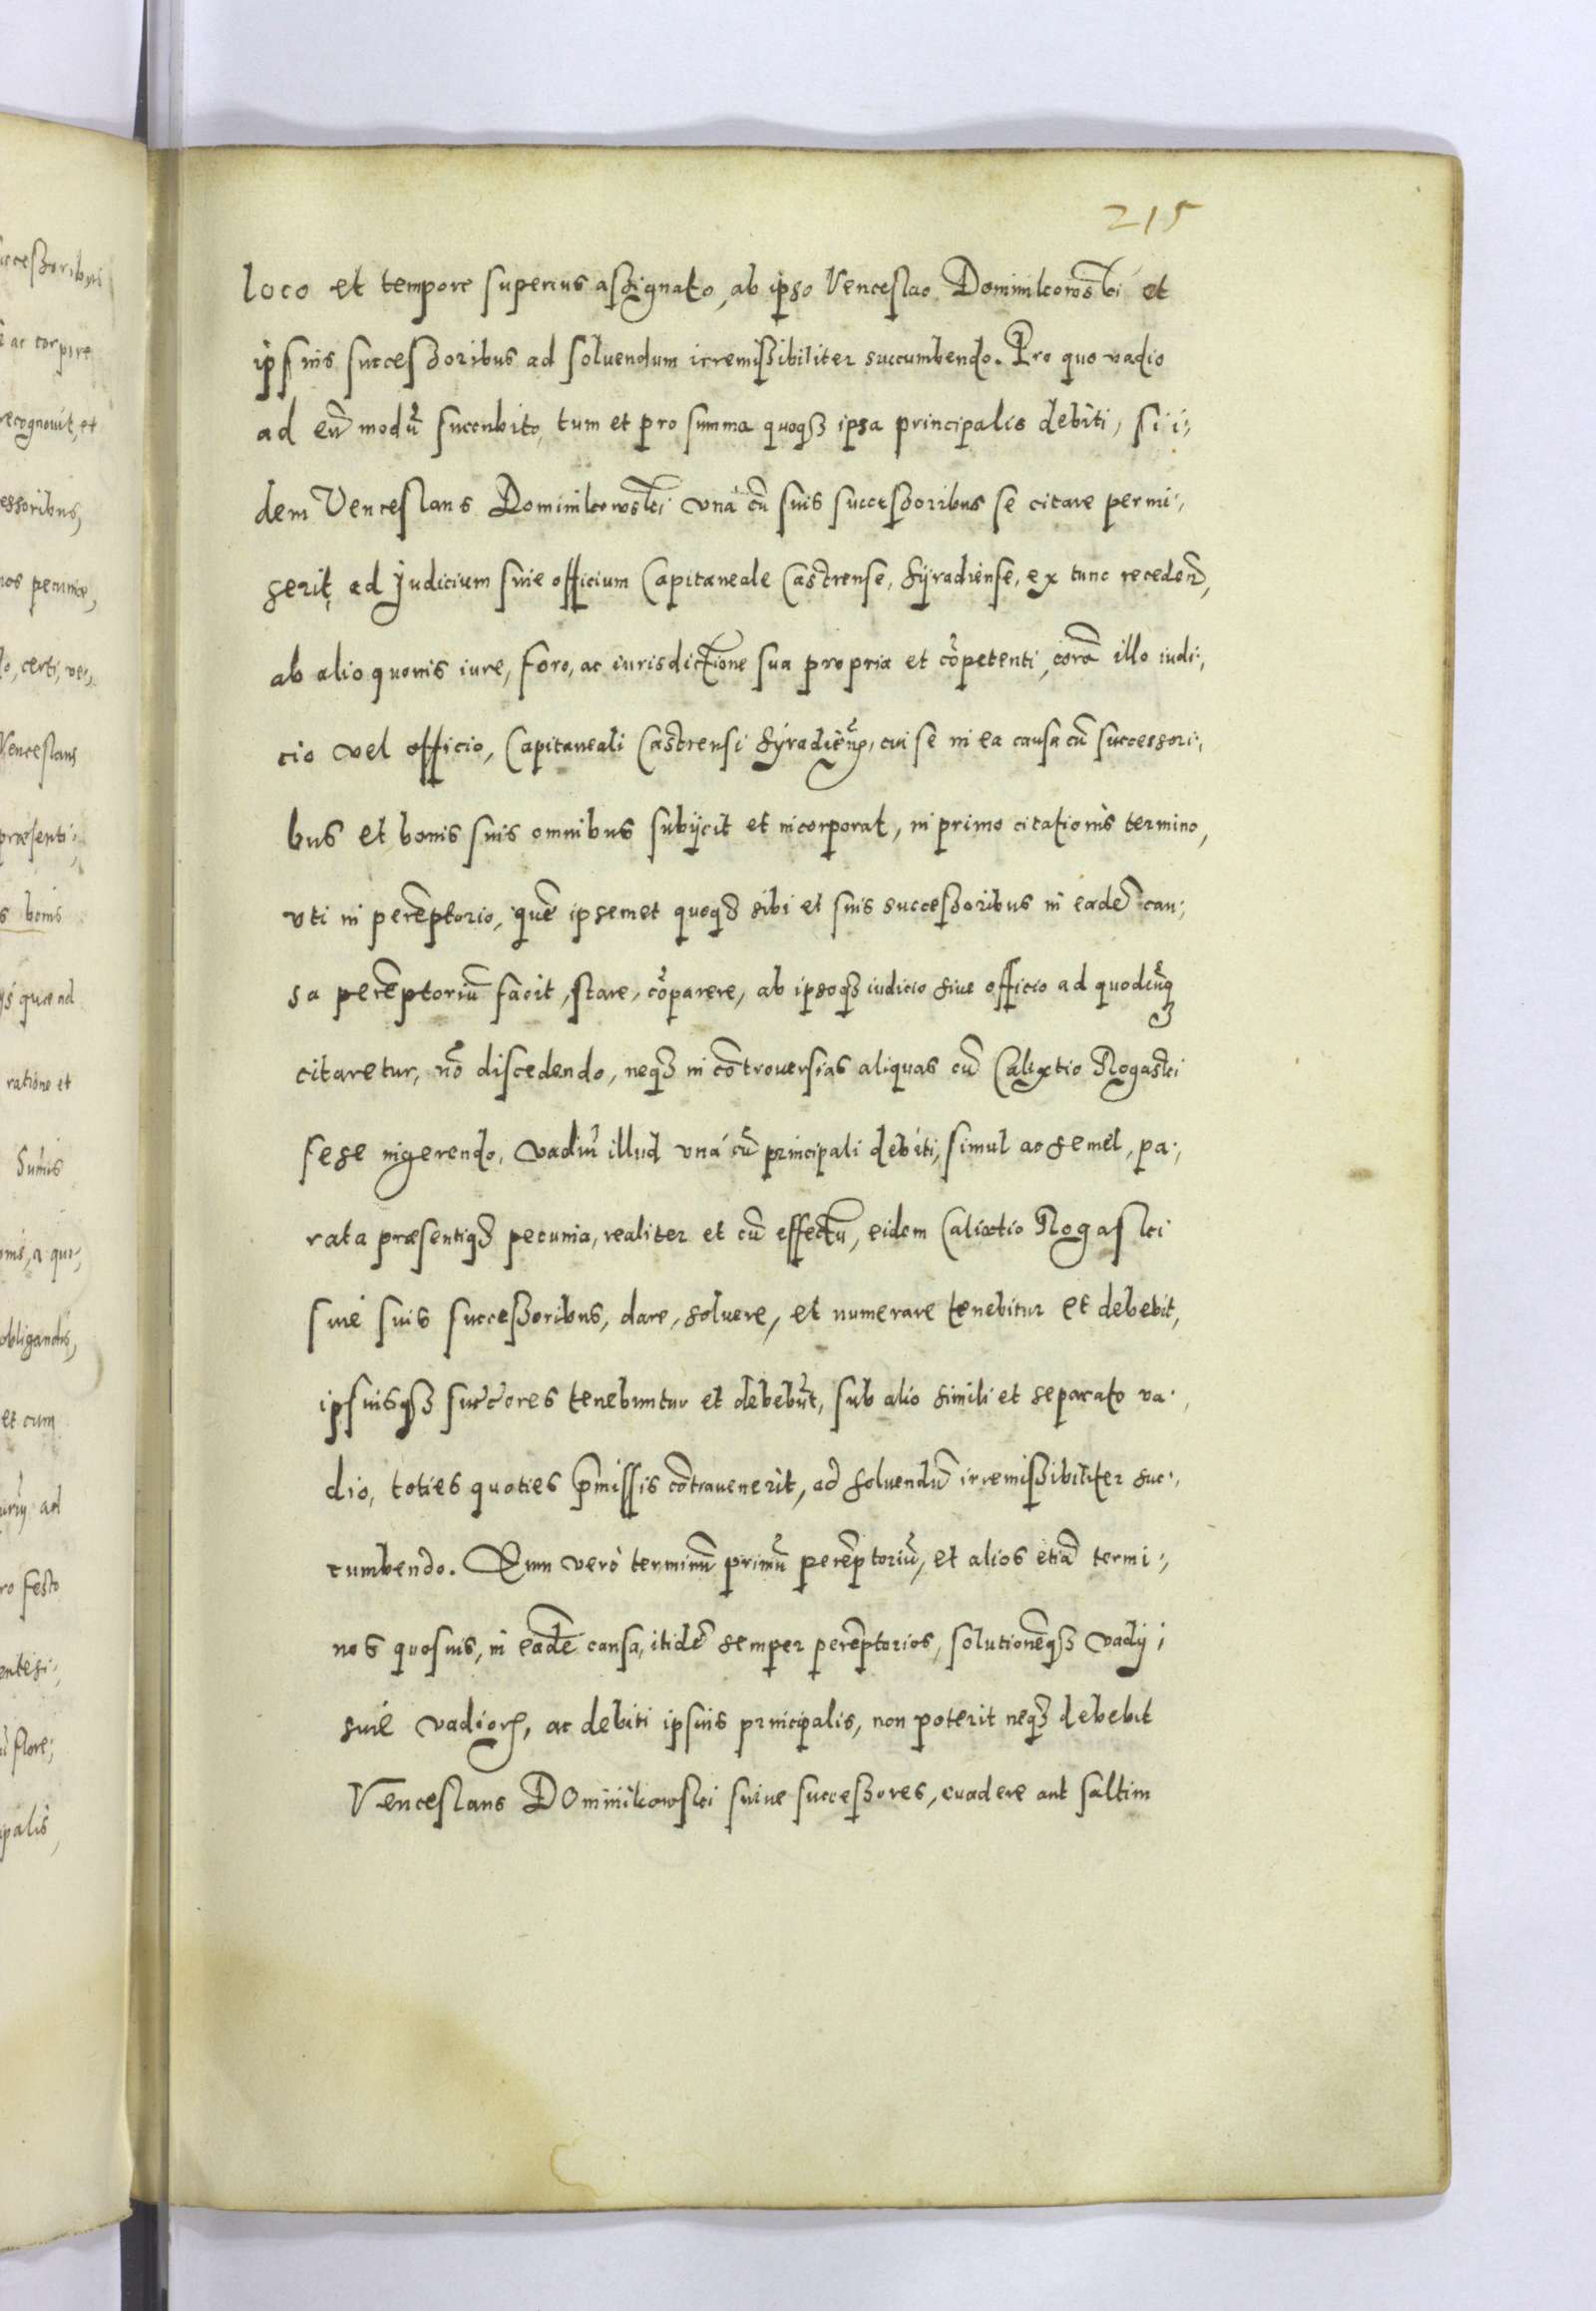 215
loco et tempore superius assignato, ab ipso Venceslao Dominikowski et
ipsius successoribus ad soluendum irremissibiliter succumbendo. Pro quo vadio
ad eū modū succubito, tum et pro summa quoqꝫ ipsa principalis debiti, si i;
dem Venceslaus Dominikowski unà cū suis successoribus se citare permi;
serit, ad Judicium siue officium Capitaneale Castrense, Syradiense, ex tunc
ab alio quouis iure, foro, ac iurisdictione sua propria et cōpetenti, corā illo iudi;
cio vel officio, Capitaneali Castrensi cui se in ea causa cū successori;
bus et bonis suis omnibus subijcit et incorporat, in primo citationis termino,
vti in perēptorio, quē ipsemet quoqꝫ sibi et suis successoribus in eadē cau;
sa perēptoriū facit, stare, cōparere, ab ipsoqꝫ iudicio siue officio ad quod
citaretur, nō discedendo, neqꝫ in cōtrouersias aliquas cū Calixtio Rogaski
sese ingerendo, vadiū illud unà cū principali debiti, simul ac semel, pa;
rata præsentiqꝫ pecunia, realiter et cū effectu, eidem Calixtio Rogaski
siue suis successoribus, dare, soluere, et numerare tenebitur et debebit,
ipsiusqꝫ succores tenebuntur et debebūt, sub alio simili et separato va;
dio, toties quoties p̄missis cōtrauenerit, ad soluendū irremissibiliter suc;
cumbendo. Quin verò terminū primū perēptoriū, et alios etiā termi;
nos quosuis, in eadē causa, itidē semper perēptorios, solutionēqꝫ vadij;
siue vadioꝝ, ac debiti ipsius principalis, non poterit neqꝫ debebit
Venceslaus Dominikowski suiue successores, euadere aut saltim